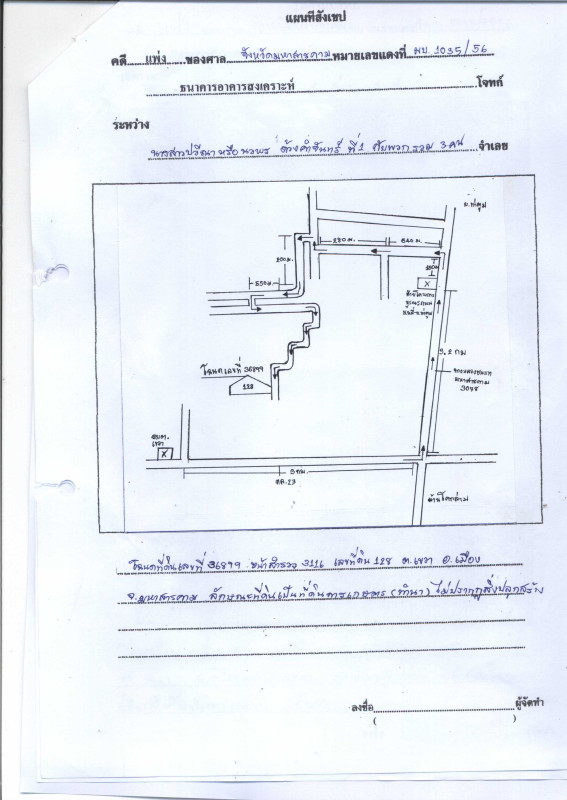 แผนที่สังเขป
คดี แพ่ง ของศาล จังหวัดมหาสารคาม หมายเลขแดงที่ ผบ. 1035/56
ธนาคารอาคารสงเคราะห์ โจทก์
ระหว่าง
นางสาวปวีณา หรือ นวพร ด้วงคำจันทร์ ที่ 1 กับพวกรวม 3 คน จำเลย
200ม.
550ม.
โฉนดเลขที่ 36899
128
อบต.
เขวา
X
X
5.2 กม
5 กม.
ทล.23
โฉนดที่ดินเลขที่ 36899 หน้าสำรวจ 3116 เลขที่ดิน 128 ต.เขวา อ.เมือง
จ.มหาสารคาม ลักษณะที่ดินเป็นที่ดินการเกษตร (ทำนา) ไม่ปรากฏสิ่งปลูกสร้าง
ลงชื่อ ผู้จัดทำ
( )